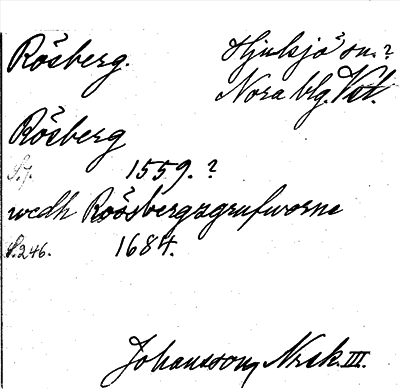 Rösberg. Hjulsjö sn.?
Nora blg. Vst.
Rösberg
S.7. 1559.?
wedh Röösbergzgrufworne
S.246. 1684.
Johansson, Nrsk. III.